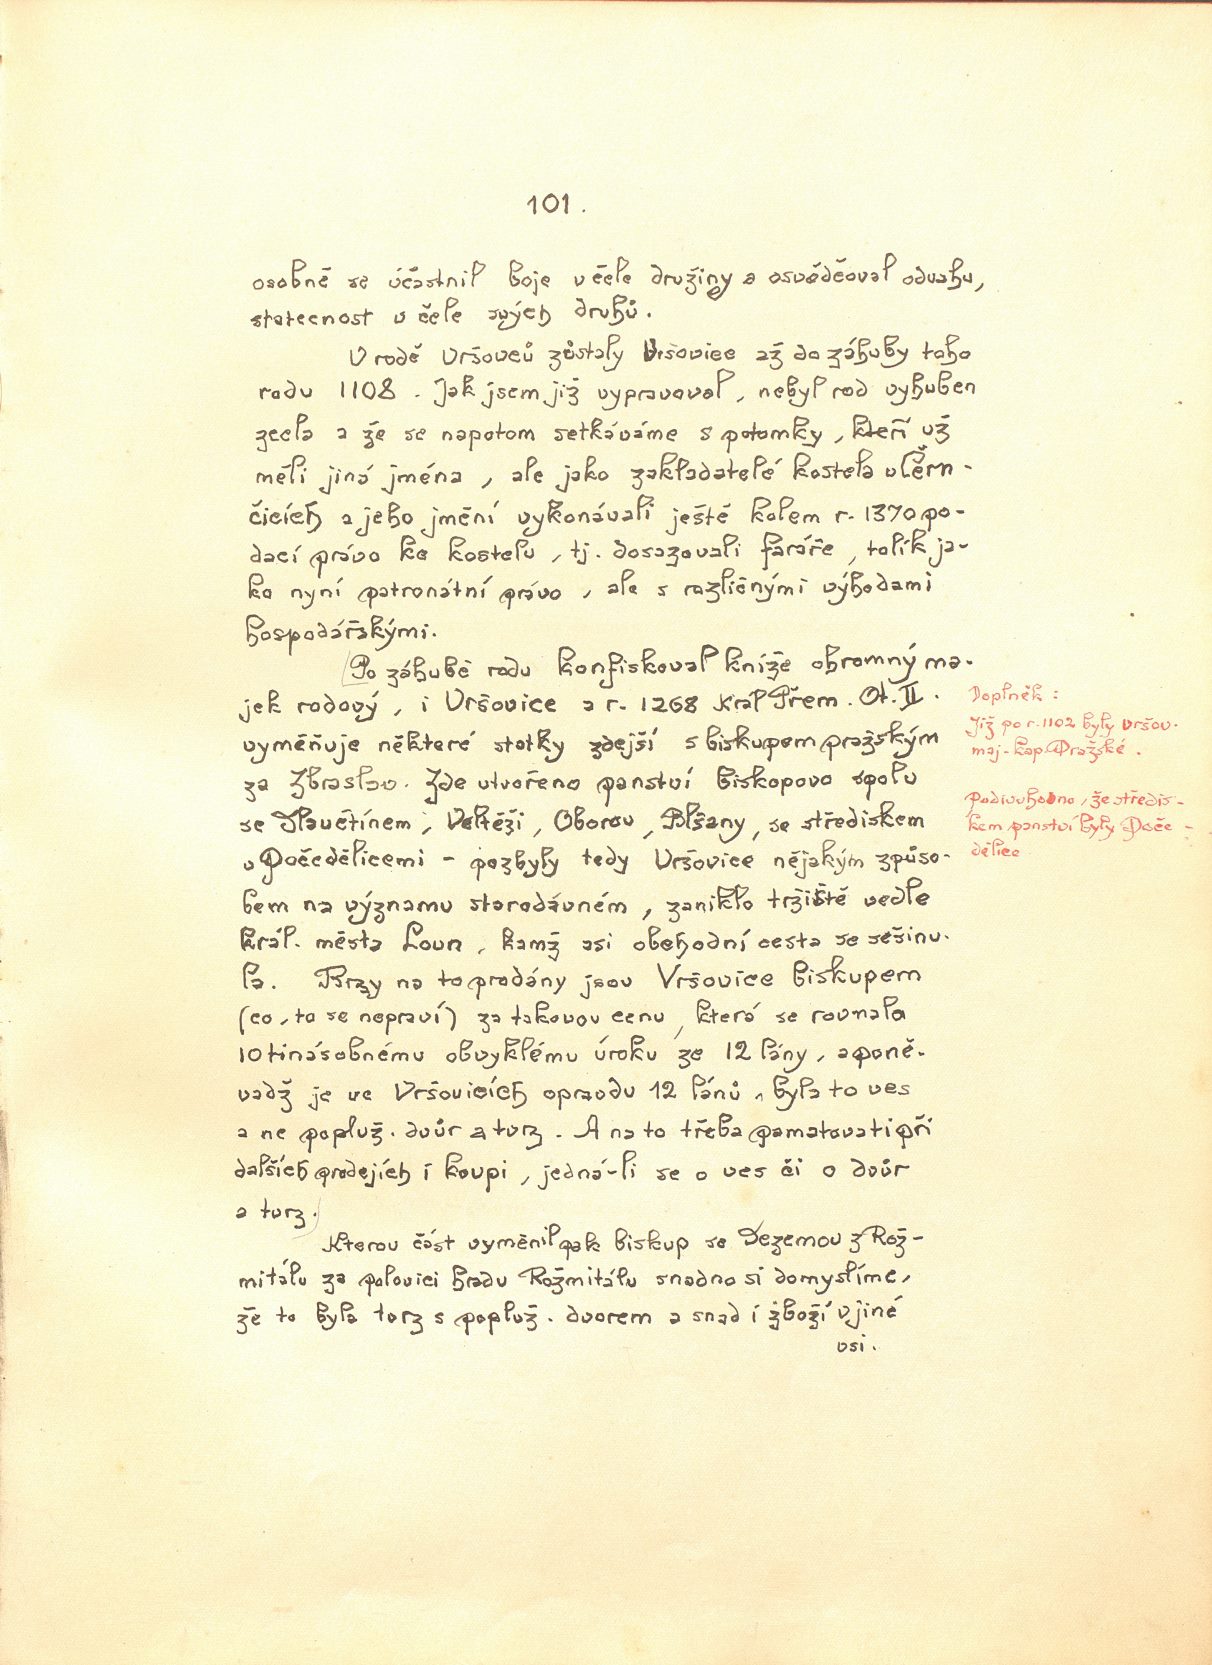 101.
osobně se účastnil boje v čele družiny a osvědčoval odvahu,
statecnost v čele svých druhů.
V rodě Vršovců zůstaly Vršovice až do záhuby toho
rodu 1108. Jak jsem již vypravoval, nebyl rod vyhuben
zcela a že se napotom setkáváme s potomky, kteří už
měli jiná jména, ale jako zakladatelé kostela v Čern-
čicích a jeho jmění vykonávali ještě kolem r. 1370 po-
dací právo ke kostelu, tj. dosazovali faráře, tolik ja-
ko nyní patronátní právo, ale s različnými výhodami
hospodářskými.
Po záhubě rodu konfiskoval kníže ohromný ma-
jek rodový, i Vršovice a r. 1268 král Přem. Ot. II.
vyměňuje některé statky zdejší s biskupem pražským
za Zbraslav. Zde utvořeno panství biskopovo spolu
se Slavětínem, Veltěži, Oborou, Blšany, se střediskem
v Počedělicemi - pozbyly tedy Vršovice nějakým způso-
bem na významu starodávném, zaniklo tržiště vedle
král. města Loun, kamž asi obchodní cesta se sešinu-
la. Brzy na to prodány jsou Vršovice biskupem
(co, to se nepraví) za takovou cenu, která se rovnala
10tinásobnému obvyklému úroku ze 12 lány, a poně-
vadž je ve Vršovicích opravdu 12 lánů, byla to ves
a ne popluž. dvůr a tvrz. A na to třeba pamatovati při
dalších prodejích i koupi, jedná-li se o ves či o dvůr
a tvrz.
Kterou část vyměnil pak biskup se Dezemou z Rož-
mitálu za polovici hradu Rožmitálu snadno si domyslíme,
že to byla tvrz s popluž. dvorem a snad i zboží v jiné
vsi.
Doplněk:
Již po r. 1102 byly vršov.
maj. kap. Pražské.
Podivuhodno, že středis-
kem panství byly Poče-
dělice